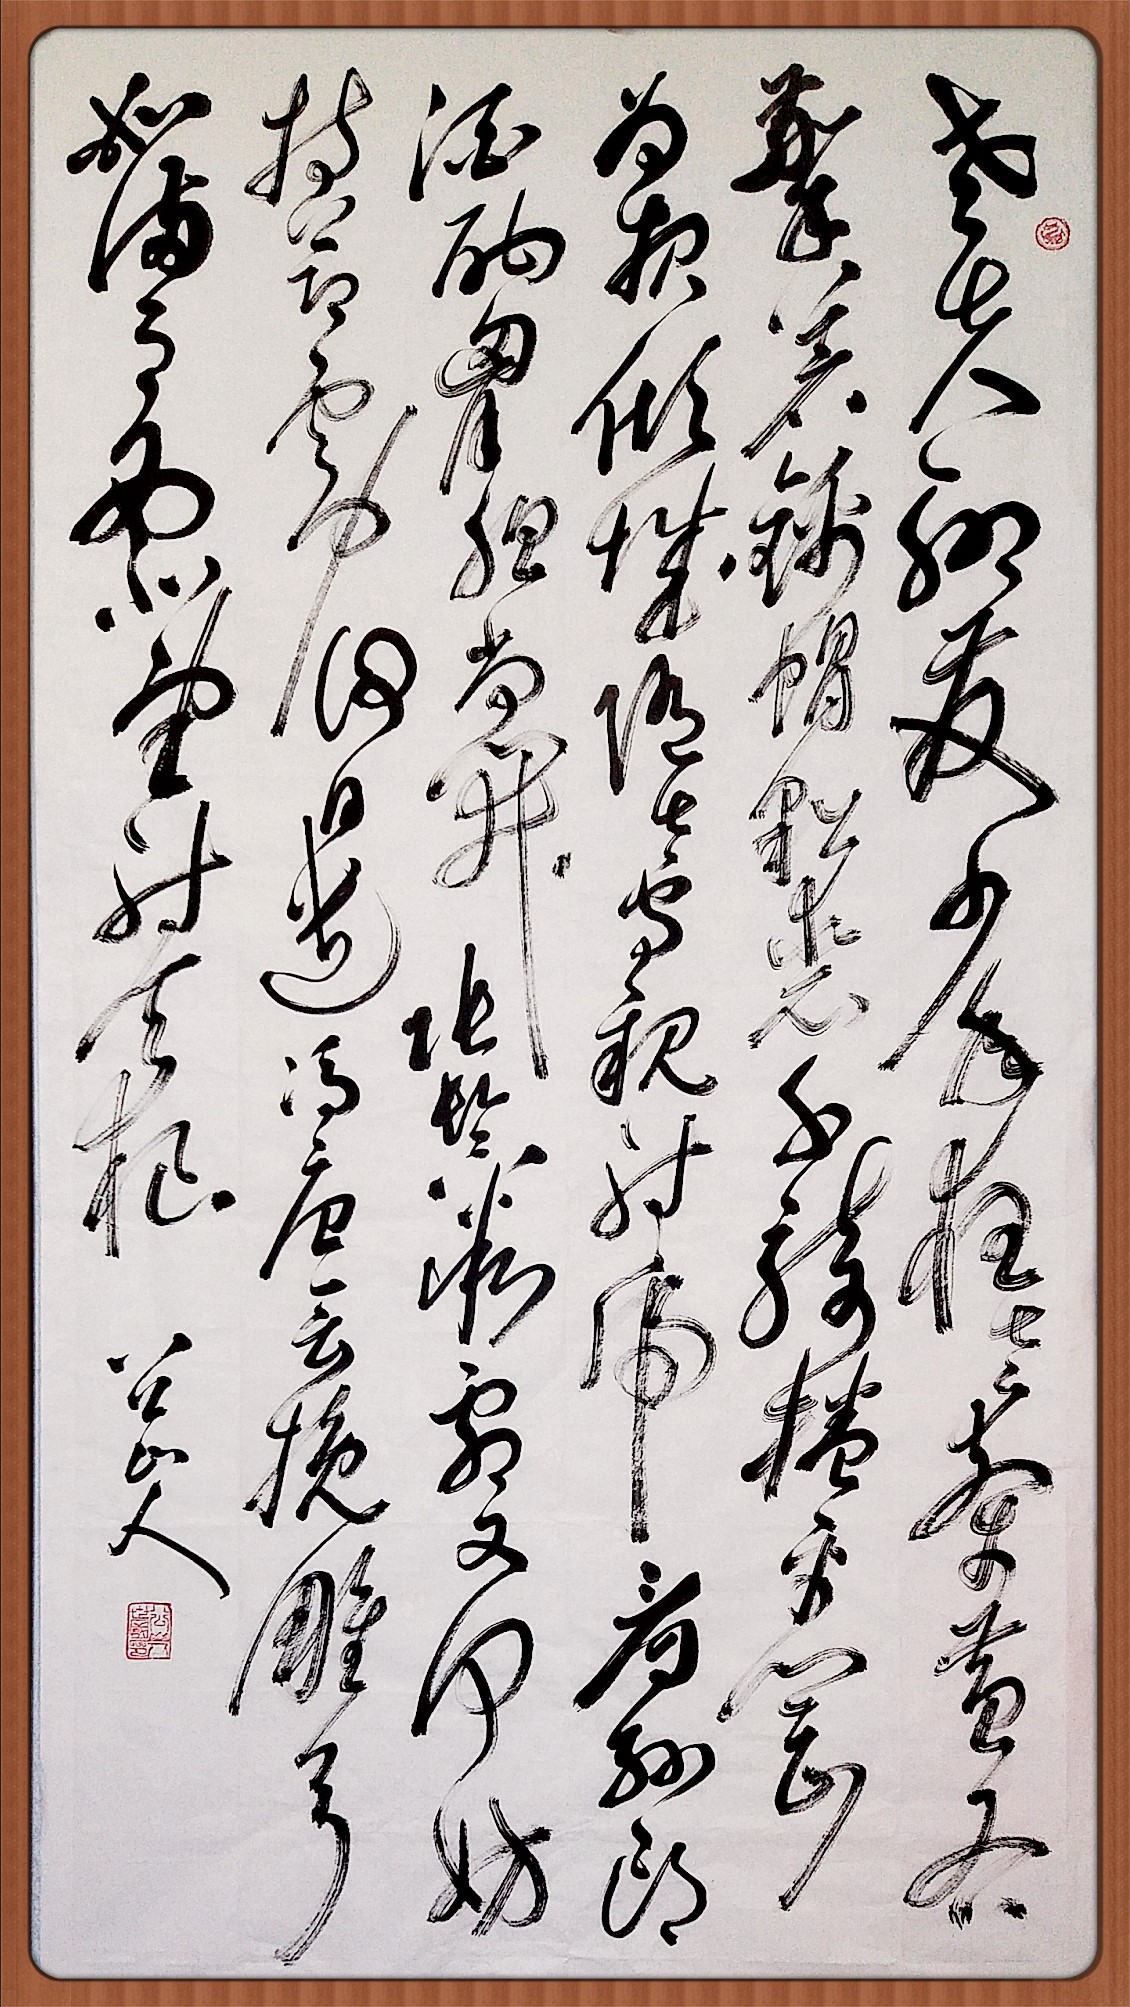 老夫聊發少年狂左牽黃右
擎蒼錦帽貂裘千騎捲平岡
為報傾城隨太守親射虎看孫郎
酒酣胸膽尚開張鬢微霜又何妨
持節雲中何日遣馮唐会挽雕弓
如滿月西北望射天狼